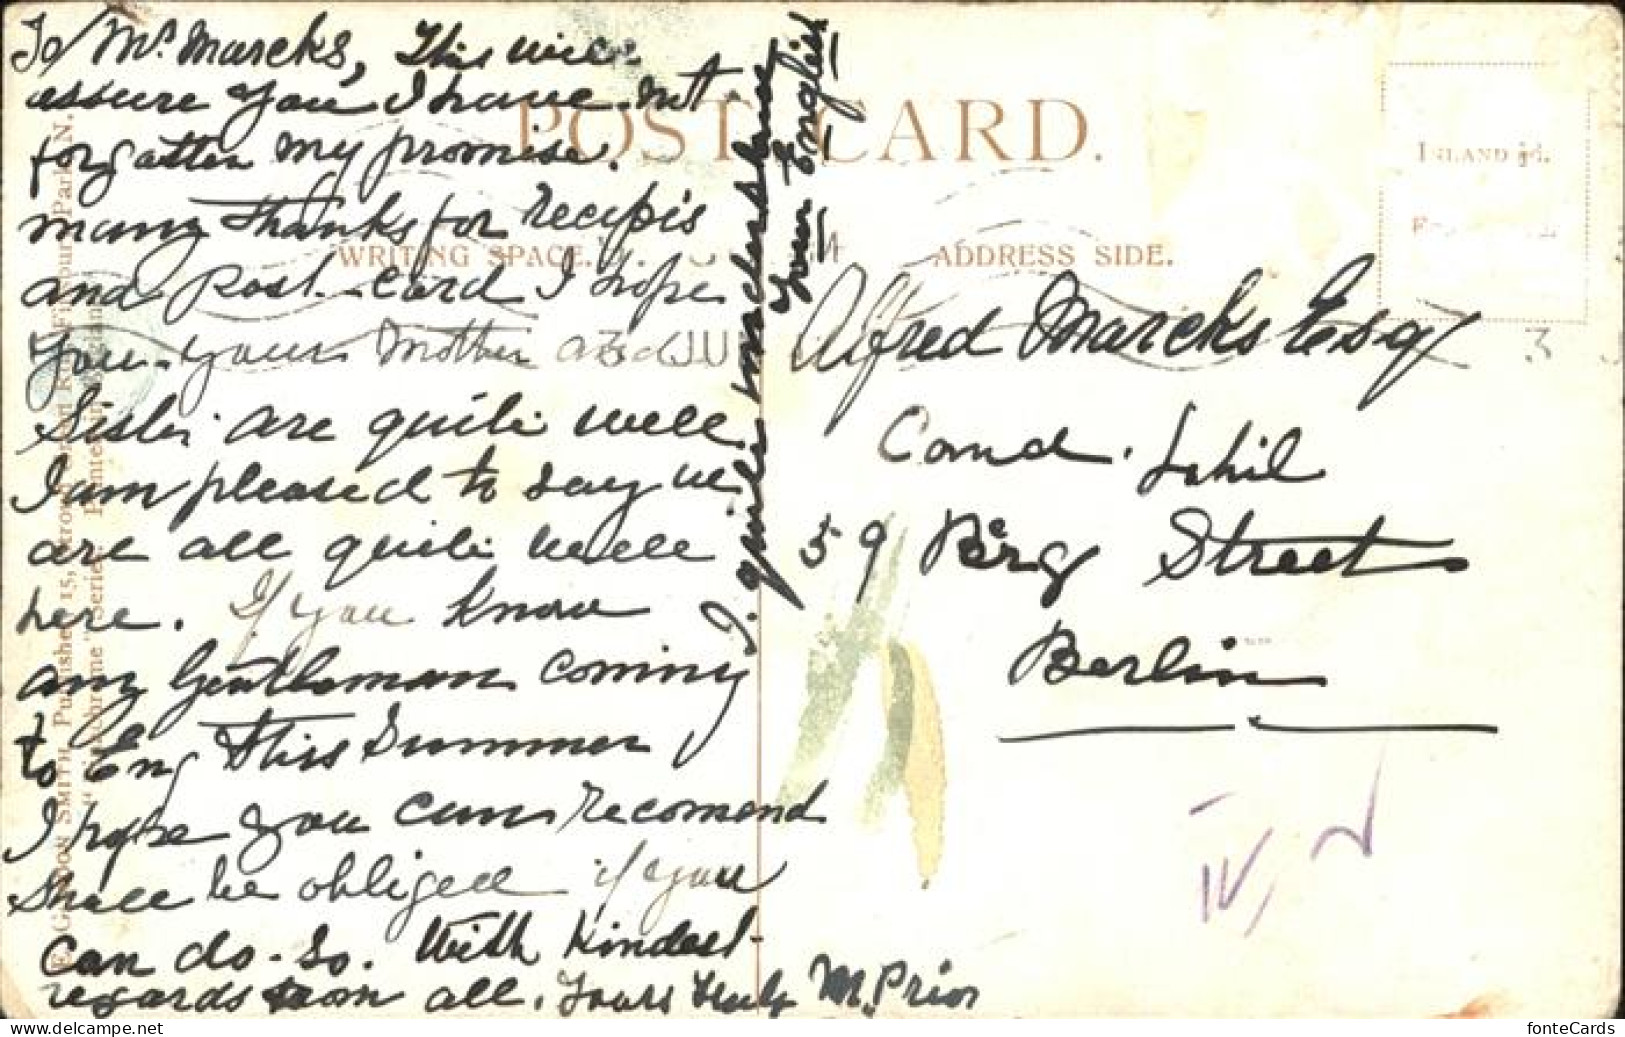 To Mr Marcks, This will
assure you I have not
forgotten my promise.
many thanks for recipis
and Post-Card I hope
You your Mother and
Sister are quite well
I am pleased to say we
are all quite well
here. If you know
any Gentleman coming
to Eng this Summer
I hope you can recomend
Shall be obliged if you
can do so. With Kindest
regards from all. Yours truly M. Prior
I quite understand
Your English
POST CARD.
WRITING SPACE.
ADDRESS SIDE.
INLAND ½d.
Alfred Marcks Esq
Cand.
59 Berg Street
Berlin
3
GORDON SMITH, Publisher, 15,
Series.
fonteCards